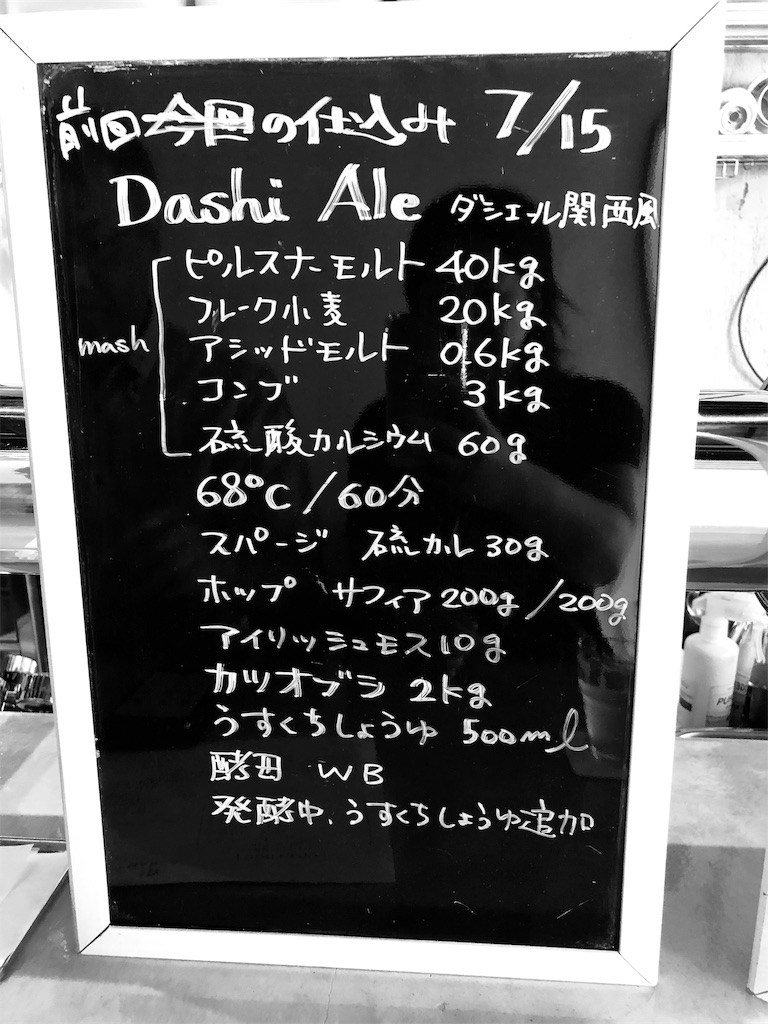 前回今回の仕込み 7/15
Dashi Ale ダシエール関西風
mash
ピルスナーモルト 40kg
フレーク小麦 20kg
アシッドモルト 0.6kg
コンブ 3kg
硫酸カルシウム 60g
68℃/60分
スパージ 硫カル 30g
ホップ サフィア 200g/200g
アイリッシュモス 10g
カツオブシ 2kg
うすくちしょうゆ 500ml
酵母 WB
発酵中、うすくちしょうゆ追加